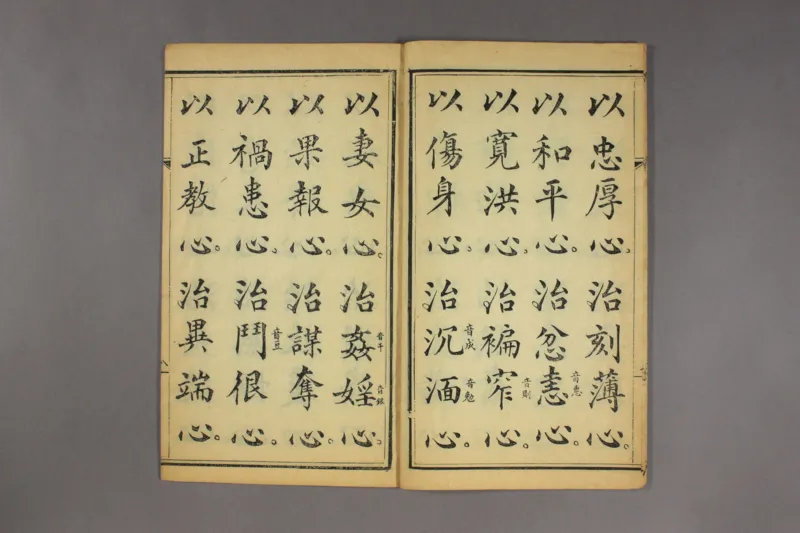 以忠厚心。治刻薄心。
以和平心。治忿恚音惠心。
以寬洪心。治褊窄音則心。
以傷身心。治沉音成湎音勉心。
以妻女心。治姦音干婬音銀心。
以果報心。治謀奪心。
以禍患心。治鬥音豆很心。
以正教心。治異端心。